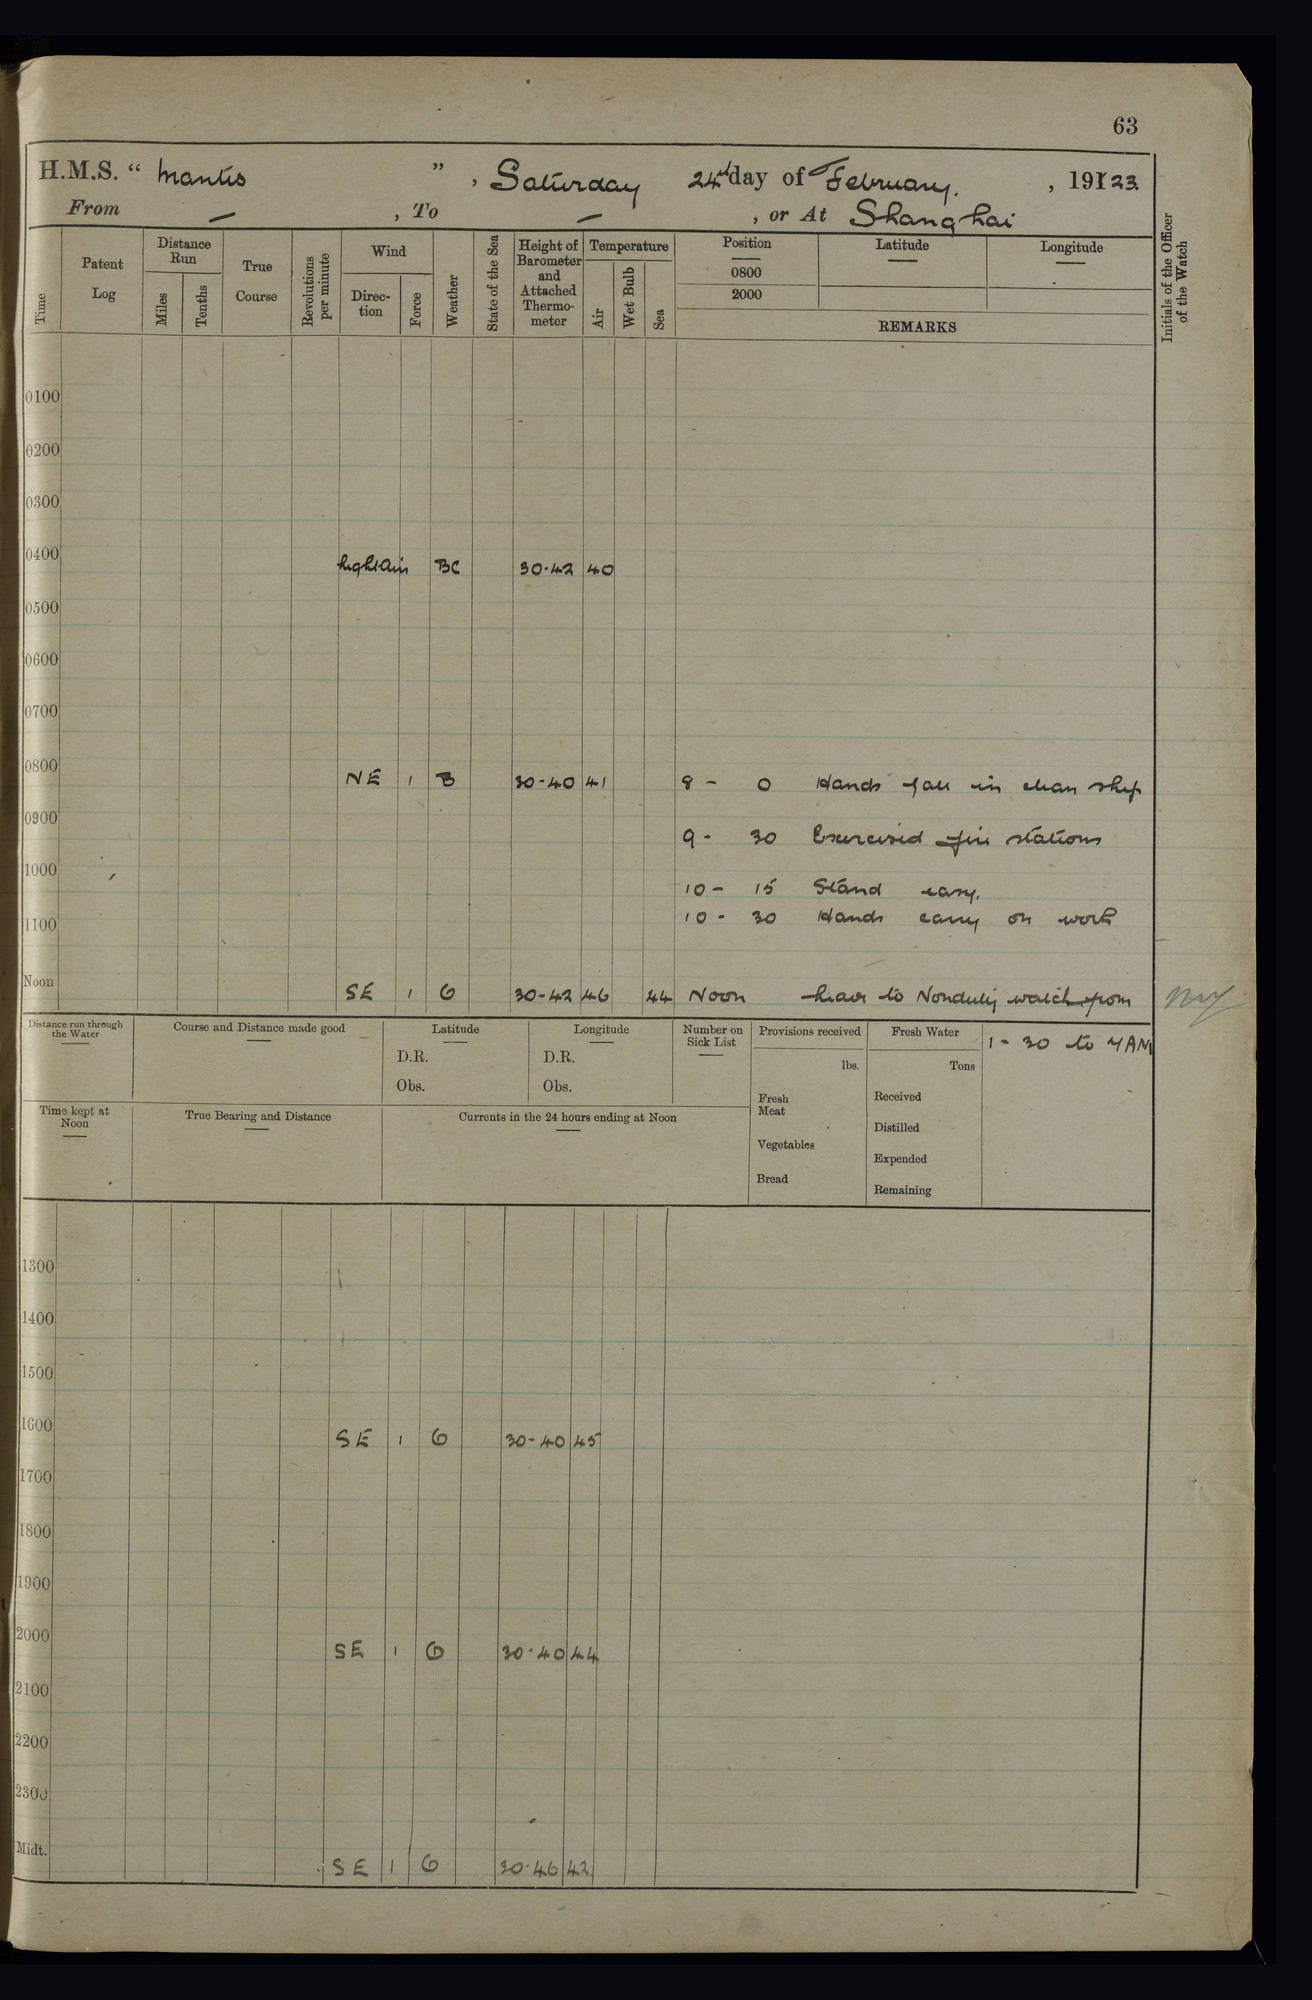 63
H.M.S. “ Mantis ” , Saturday 24th day of February. , 191 23
From — , To — , or At Shanghai
Time
Patent Log
Distance Run
Miles
Tenths
True Course
Revolutions per minute
Wind
Direc-tion
Force
Weather
State of the Sea
Height of Barometer and Attached Thermo-meter
Temperature
Air
Wet Bulb
Sea
Position
0800
2000
Latitude
Longitude
REMARKS
Initials of the Officer of the Watch
0100
0200
0300
0400 light airs BC 30.42 40
0500
0600
0700
0800 NE 1 B 30-40 41 8 - 0 Hands fall in clean ship
0900 9 - 30 Exercised fire stations
1000 10 - 15 Stand easy.
1100 10 - 30 Hands carry on work
Noon SE 1 G 30-42 46 44 Noon leave to Nonduty watch from
1 - 30 to 7 AM
Distance run through the Water
Course and Distance made good
Latitude
D.R.
Obs.
Longitude
D.R.
Obs.
Number on Sick List
Provisions received
lbs.
Fresh Meat
Vegetables
Bread
Fresh Water
Tons
Received
Distilled
Expended
Remaining
Time kept at Noon
True Bearing and Distance
Currents in the 24 hours ending at Noon
1300
1400
1500
1600 SE 1 G 30-40 45
1700
1800
1900
2000 SE 1 G 30.40 44
2100
2200
2300
Midt. SE 1 G 30.46 42